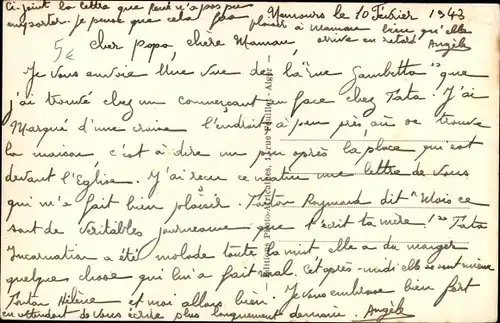 Ci-joint la lettre que René n'a pas pu
emporter. Je pense que cela fera
plaisir à Maman bien qu'elle
arrive en retard Angèle
Nemours le 10 Février 1943
5€
Cher Papa, chère Maman,
Je vous envoie une vue de la "rue Gambetta" que
j'ai trouvé chez un commerçant en face chez Tata. J'ai
Marqué d'une croix l'endroit à peu près, où se trouve
la maison, c'est à dire un peu après la place qui est
devant l'Eglise. J'ai reçu ce matin une lettre de vous
qui m'a fait bien plaisir. Tonton Raymond dit "Mais ce
sont de véritables journeaux que t'écrit ta mère!" Tata
Incarnation a été malade toute la nuit elle a du manger
quelques chose qui lui a fait mal. Cet après-midi elle se sent mieux
Tantan Hélène et moi allons bien. Je vous embrasse bien fort
en attendant de vous écrire plus longuement demain. Angèle
Africaines, rue Feuillet - Alger